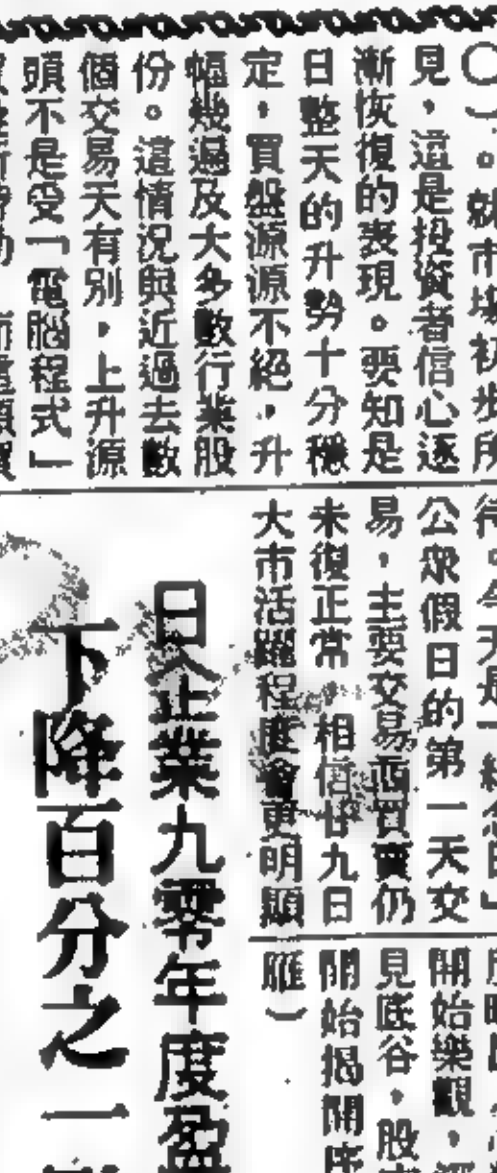 〇）。就市場初步所
見，這是投資者信心逐
漸恢復的表現。要知是
日整天的升勢十分穩
定，買盤源源不絕，升
幅幾遍及大多數行業股
份。這情況與近過去數
個交易天有別，上升源
頭不是受「電腦程式」
公眾假日的第一天交
易，主要交易商買賣仍
未復正常，相信廿九日
大市活躍程度會更明顯
開始樂觀，
見底谷，股
開始揭開序
雁）
日企業九零年度盈
下降百分之一